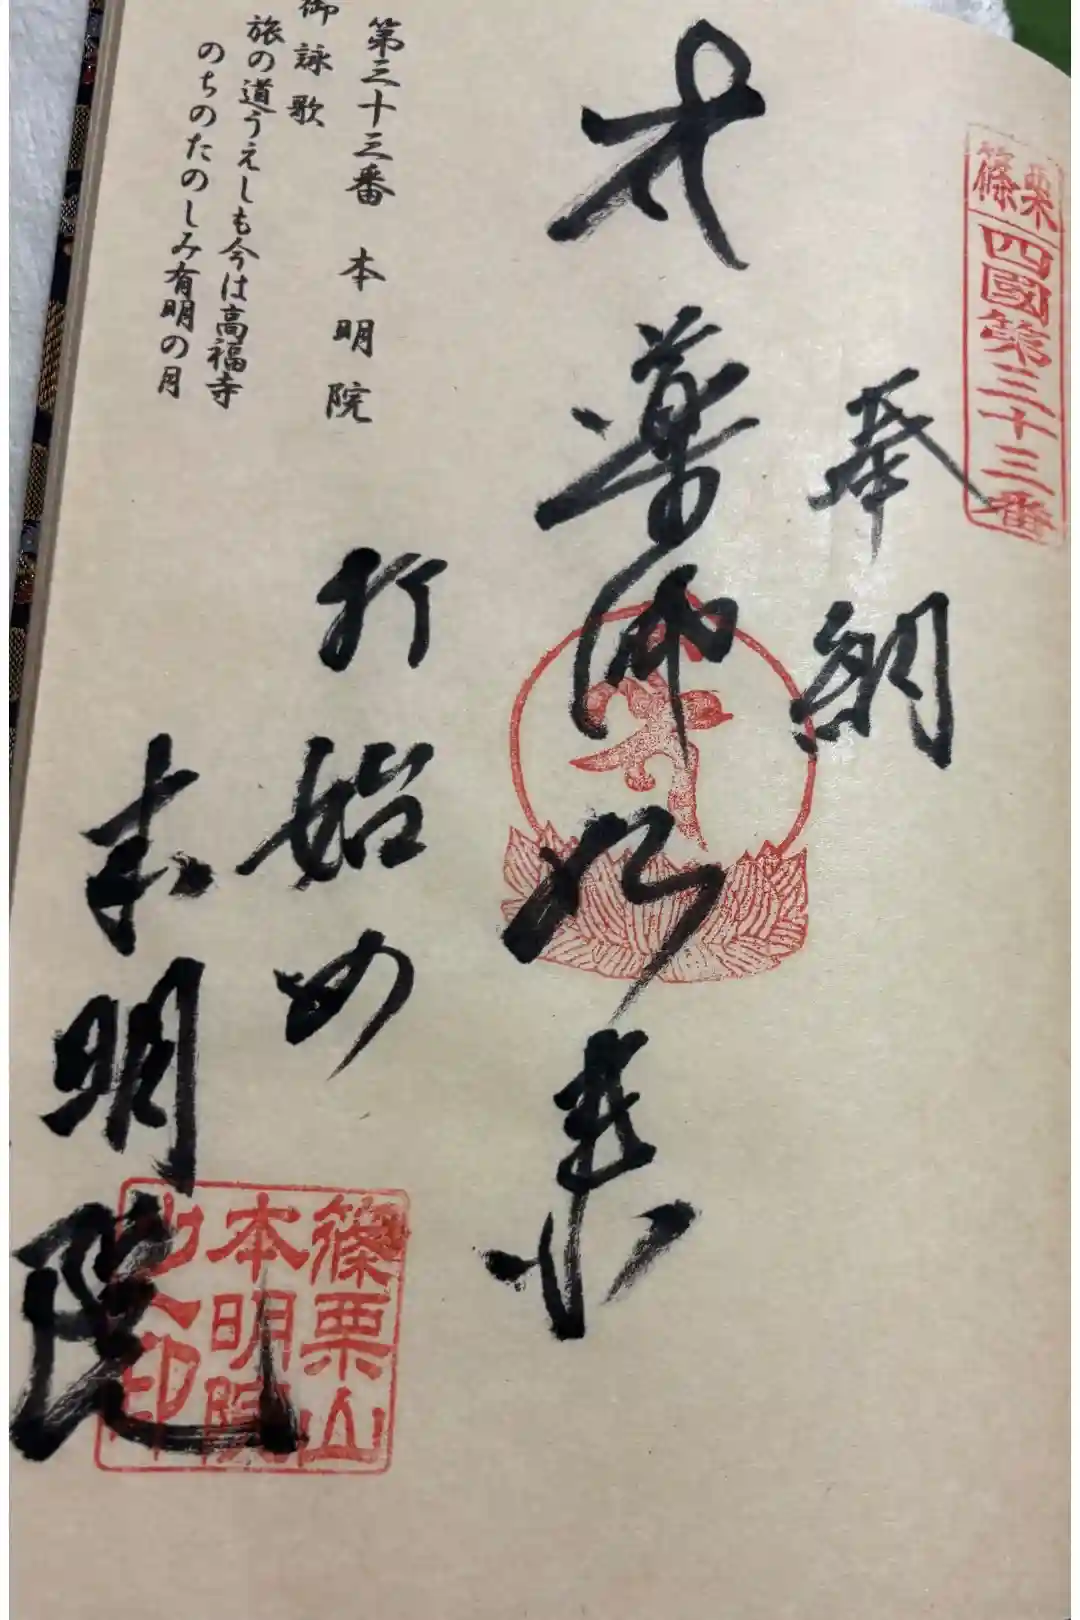 篠栗四國第三十三番
奉納
薬師如来
第三十三番 本明院
御詠歌
旅の道うえしも今は高福寺
のちのたのしみ有明の月
打始め
本明院
篠栗山
本明院
之印